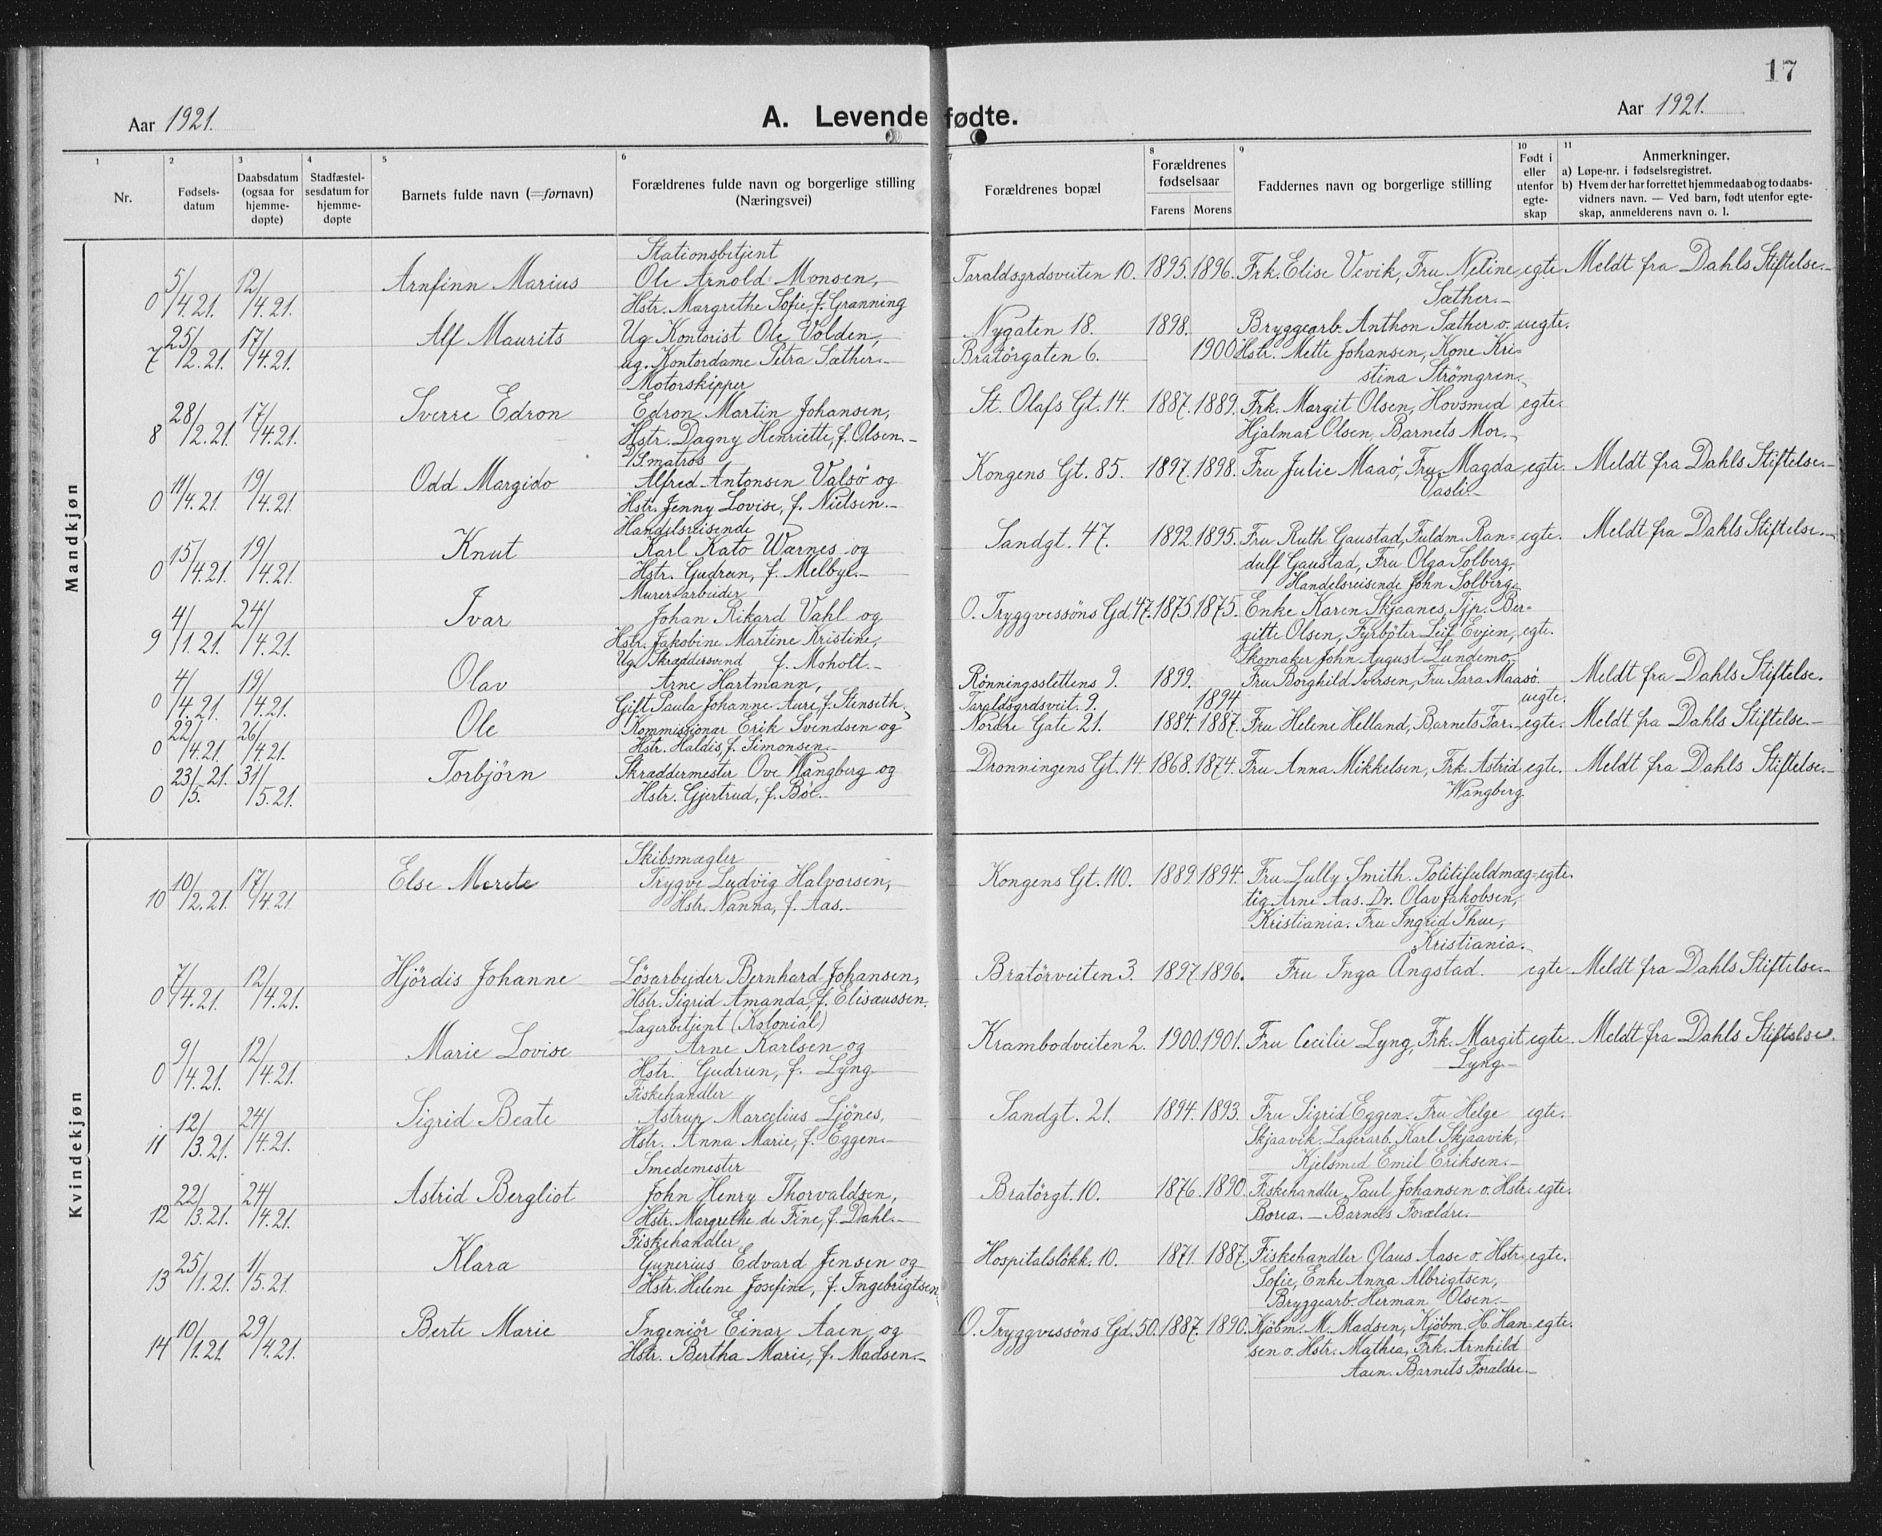 17
Aar 1921.
A. Levendefødte.
Aar 1921.
1
Nr.
2
Fødsels-
datum
3
Daabsdatum
(ogsaa for
hjemme-
døpte)
4
Stadfæstel-
sesdatum for
hjemme-
døpte
5
Barnets fulde navn (=fornavn)
6
Forældrenes fulde navn og borgerlige stilling
(Næringsvei)
7
Forældrenes bopæl
8
Forældrenes
fødselsaar
Farens Morens
9
Faddernes navn og borgerlige stilling
10
Født i
eller
utenfor
egte-
skap
11
Anmerkninger.
a) Løpe-nr. i fødselsregistret.
b) Hvem der har forrettet hjemmedaab og to daabs-
vidners navn. — Ved barn, født utenfor egte-
skap, anmelderens navn o. l.
Mandkjøn
0 5/4.21. 12/4.21. Arnfinn Marius
Stationsbetjent
Ole Arnold Monsen,
Hstr. Margrethe Sofie, f. Granning
Taraldsgrdsveiten 10. 1895. 1896. Frk. Elise Vevik, Fru Neline egte Meldt fra Dahls Stiftelse.
Sæther.
7 25/2.21. 17/4.21. Alf Maurits
Ug. Kontorist Ole Volden,
ug. Kontordame Petra Sæther.
Nygaten 18. 1898. Bryggearb. Anthon Sæther o. uegte.
Bratörgaten 6. 1900 Hstr. Mette Johansen, Kone Kri-
stina Strömgren.
8 28/2.21. 17/4.21. Sverre Edron
Motorskipper
Edron Martin Johansen,
Hstr. Dagny Henriette, f. Olsen.
St. Olafs Gt. 14. 1887. 1889. Frk. Margit Olsen, Hovsmed egte.
Hjalmar Olsen, Barnets Mor.
0 11/4.21. 19/4.21. Odd Margido
D/S. matros
Alfred Antonsen Valsø og
Hstr. Jenny Lovise, f. Nielsen.
Kongens Gt. 85. 1897. 1898. Fru Julie Maaö, Fru Magda egte. Meldt fra Dahls Stiftelse.
Vasli.
0 15/4.21. 19/4.21. Knut
Handelsreisende
Karl Kato Wærnes og
Hstr. Gudrun, f. Melbye.
Sandgt. 47. 1892. 1895. Fru Ruth Gaustad, Fuldm. Ran- egte. Meldt fra Dahls Stiftelse.
dulf Gaustad, Fru Olga Solberg,
Handelsreisende John Solberg.
9 4/1.21. 24/4.21. Ivar
Murerarbeider
Johan Rikard Vahl og
Hstr. Jakobine Martine Kristine,
f. Moholt.
O. Tryggvessöns Gd. 47. 1875. 1875. Enke Karen Skjaanes, Tjp. Ber-
gitte Olsen, Fyrböter Leif Evjen, egte.
Skomaker John August Lundemo.
0 4/4.21. 19/4.21. Olav
Ug. Skræddersvend
Arne Hartmann,
Gift Paula Johanne Aure, f. Stenseth.
Rönningsslettens 9. 1899. Fru Borghild Iversen, Fru Sara Maasö. Meldt fra Dahls Stiftelse.
Taraldsgrdsveit. 9. 1894 uegte.
0 22/4.21. 26/4.21. Ole
Kommissionær Erik Svendsen og
Hstr. Haldis, f. Simonsen.
Nordre Gate 21. 1884. 1887. Fru Helene Helland, Barnets Far. egte. Meldt fra Dahls Stiftelse.
0 23/5. 21. 31/5.21. Torbjörn
Skræddermester Ove Wangberg og
Hstr. Gjertrud, f. Böe.
Dronningens Gt. 14. 1868. 1874. Fru Anna Mikkelsen, Frk. Astrid egte. Meldt fra Dahls Stiftelse.
Wangberg.
Kvindekjøn
10 10/2.21. 17/4.21 Else Merete
Skibsmægler
Trygve Ludvig Halvorsen,
Hstr. Nanna, f. Aas.
Kongens Gt. 110. 1889. 1894. Fru Lully Smith. Politifuldmæg- egte.
tig Arne Aas. Dr. Olav Jakobsen,
Kristiania. Fru Ingrid Thue,
Kristiania.
0 7/4.21. 12/4.21. Hjördis Johanne
Lösarbeider Bernhard Johansen,
Hstr. Sigrid Amanda, f. Elisæussen.
Bratörveiten 3. 1897. 1896. Fru Inga Angstad. egte Meldt fra Dahls Stiftelse.
0 9/4.21. 12/4.21. Marie Lovise
Lagerbetjent (Kolonial)
Arne Karlsen og
Hstr. Gudrun, f. Lyng.
Krambodveiten 2. 1900. 1901. Fru Cecilie Lyng, Frk. Margit egte. Meldt fra Dahls Stiftelse.
Lyng.
11 12/3.21. 24/4.21. Sigrid Beate
Fiskehandler
Astrup Marcelius Ljönes,
Hstr. Anna Marie, f. Eggen.
Sandgt. 21. 1894. 1893. Fru Sigrid Eggen. Fru Helge egte.
Skjaavik. Lagerarb. Karl Skjaavik,
Kjelsmed Emil Eriksen.
12 22/3.21. 24/4.21. Astrid Bergliot
Smedemester
John Henry Thorvaldsen,
Hstr. Margrethe de Fine, f. Dahl.
Bratörgt. 10. 1876. 1890. Fiskehandler Paul Johansen o. Hstr. egte.
Borea. — Barnets Forældre.
13 25/1.21. 1/5.21. Klara
Fiskehandler
Gunerius Edvard Jensen og
Hstr. Helene Josefine, f. Ingebrigtsen
Hospitalslökk. 10. 1871. 1887. Fiskehandler Olaus Aase o. Hstr. egte.
Sofie, Enke Anna Albrigtsen,
Bryggearb. Herman Olsen.
14 10/1.21. 29/4.21. Berte Marie
Ingeniör Einar Aaen og
Hstr. Bertha Marie, f. Madsen.
O. Tryggvessöns Gd. 50. 1887. 1890. Kjöbm. M. Madsen, Kjöbm. H. Han- egte.
sen o. Hstr. Mathea, Frk. Arnhild
Aaen. Barnets Forældre.